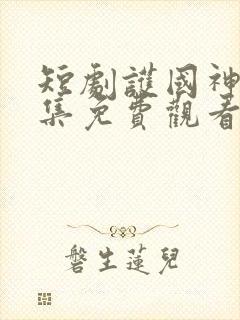 短劇護國神
集免費觀看
磐生蓮兒